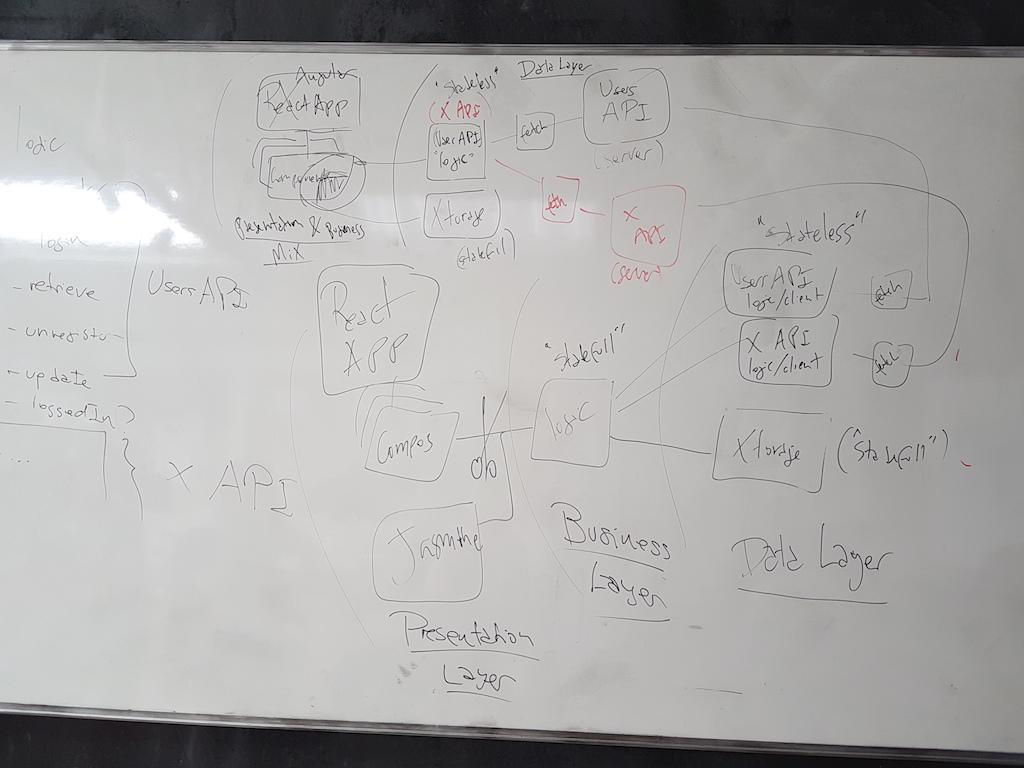 logic
login
- retrieve
- unregister
- update
- loggedIn)
....
Users API
X API
Angular
React App
Components
Presentation & Business
Mix
"stateless"
(X API)
(User API)
"logic"
Xtorage
(statefull)
Data Layer
fetch
Users
API
(server)
fetch
X
API
(server)
React
APP
Compos
Jasmine
Presentation
Layer
"statefull"
logic
Business
Layer
"stateless"
Users API
logic/client
fetch
X API
logic/client
fetch
Xtorage
("Statefull")
Data Layer